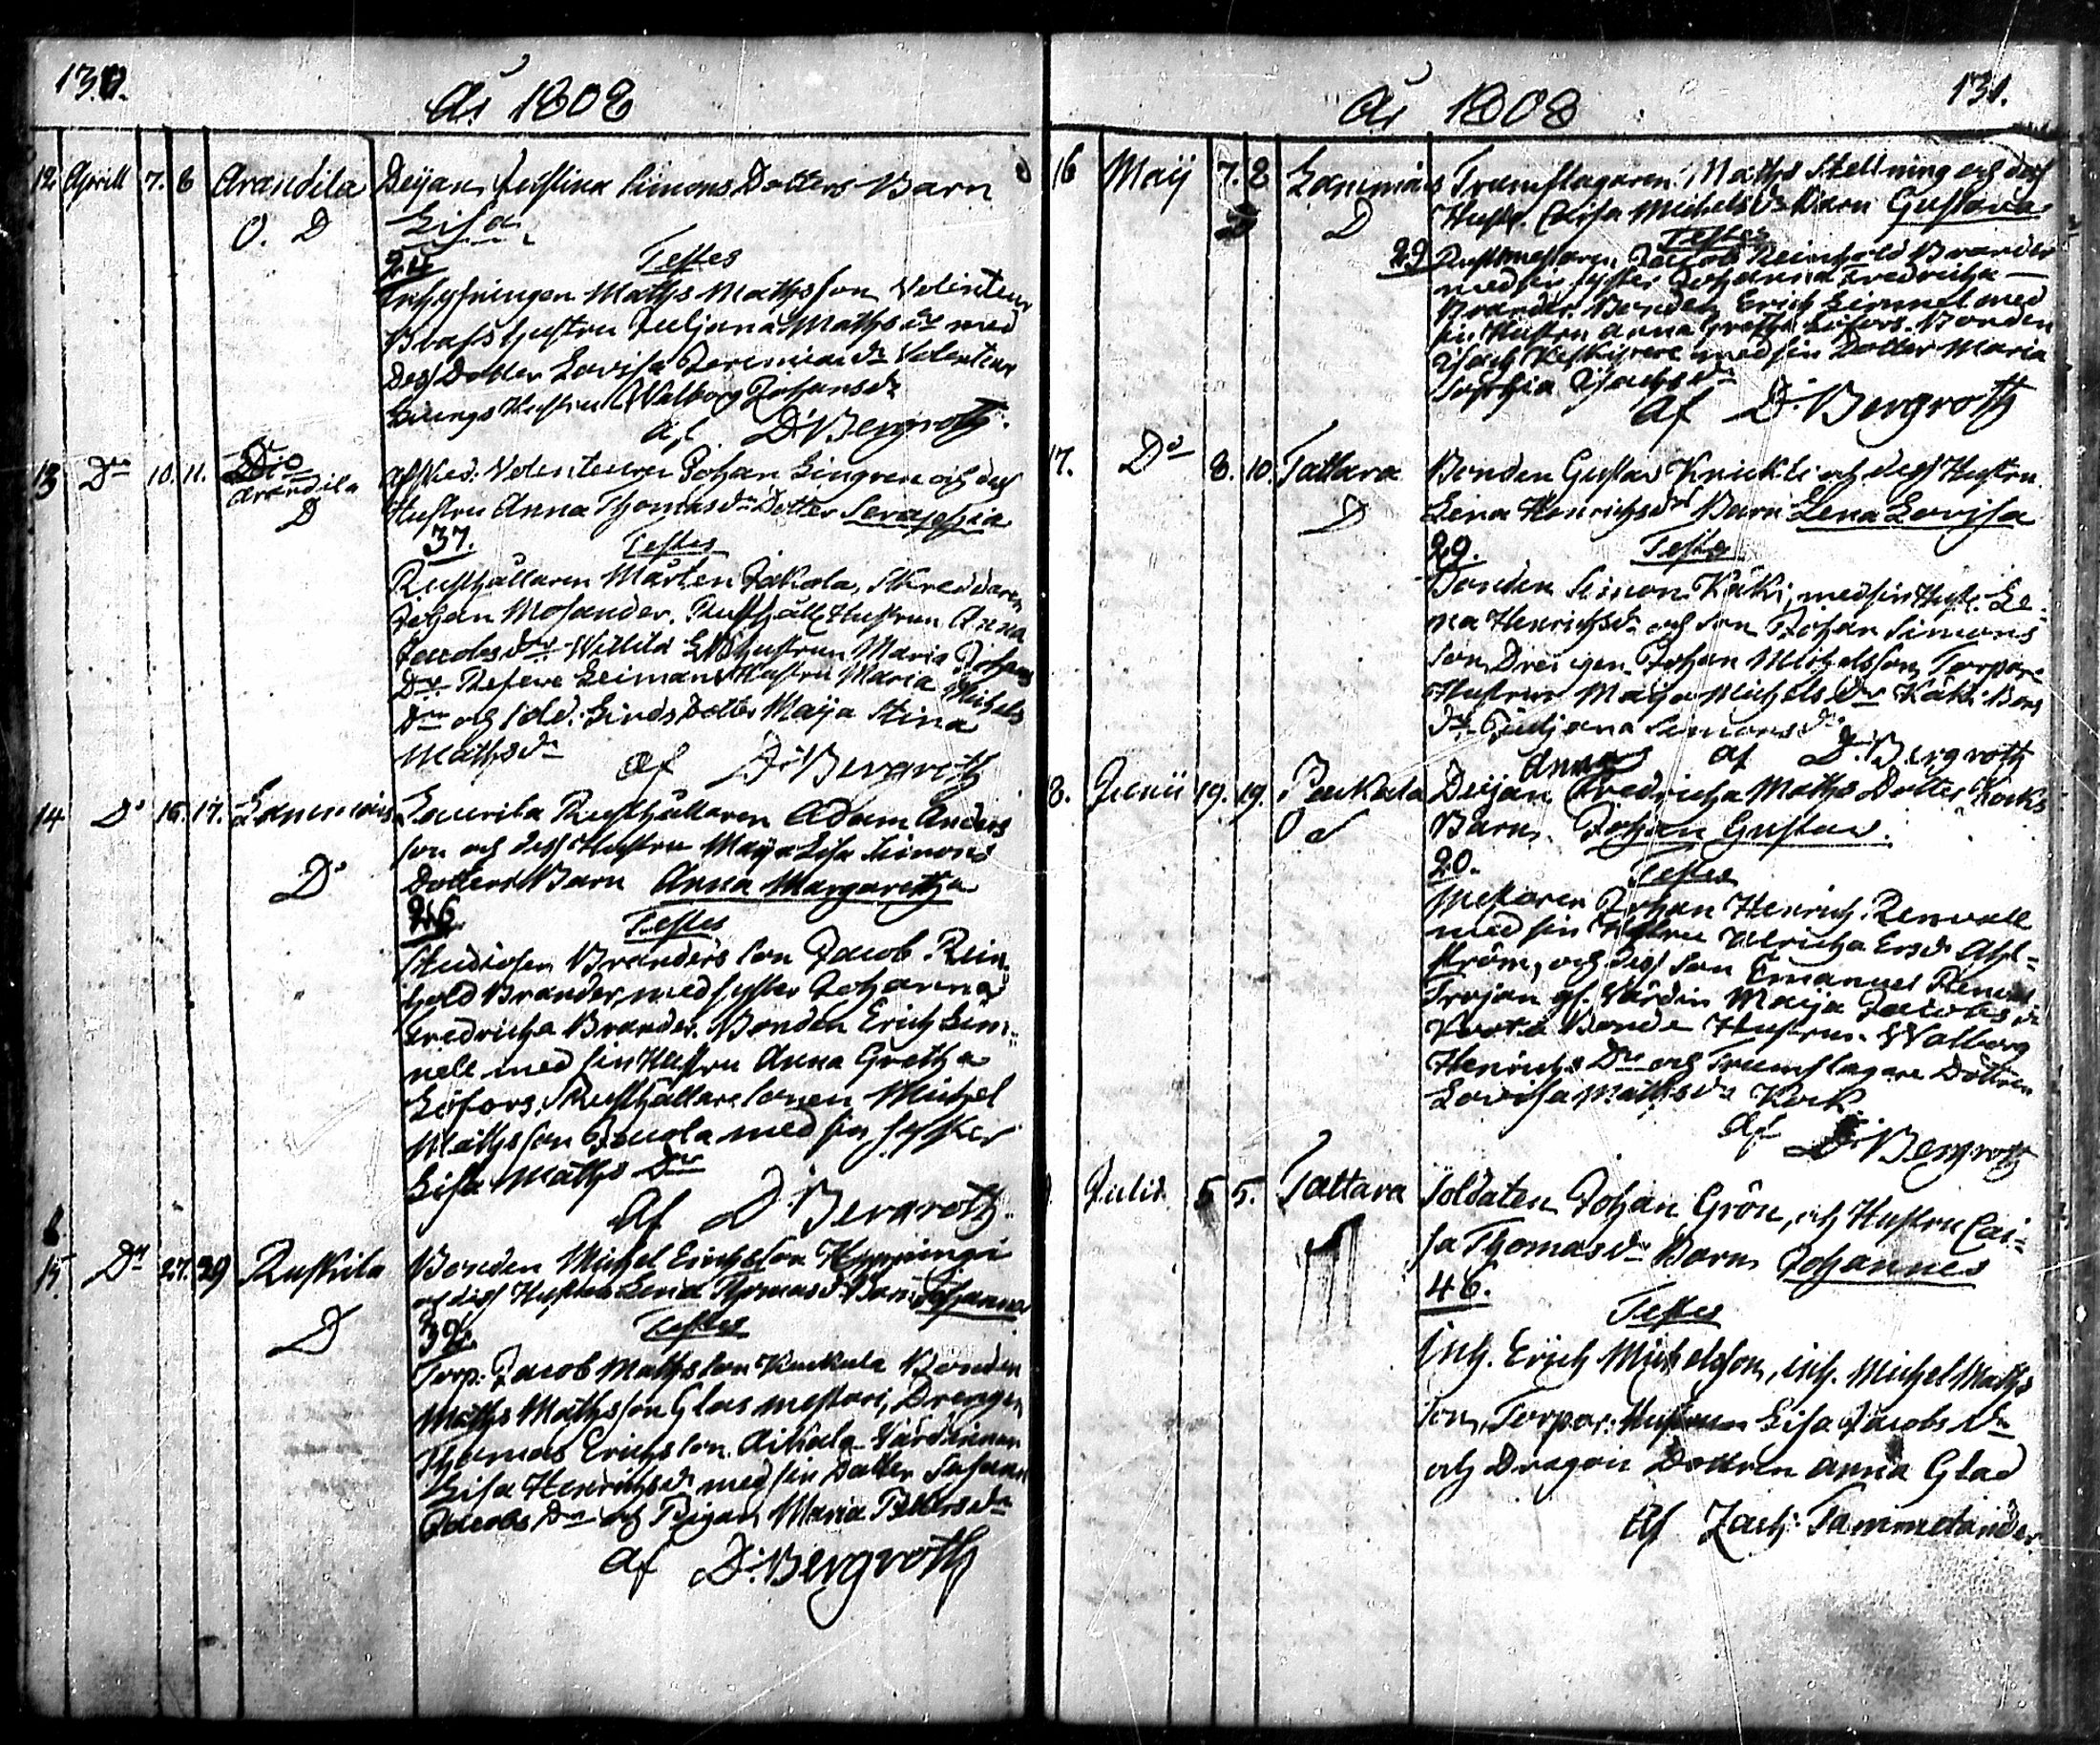 130.
År 1808
12. Aprill 7. 8 Arandila Deijan Christina Simons Dotters Barn
O. D Lisa
24 Testes
Inhysningen Maths Mathsson Volinteur
Brafs hustru Juljana Maths dr med
Dess Dotter Lovisa Jeremiaedr Volenteur
Liungs Hustru Walborg Johansdr
af D. Bergroth.
13 Do 10. 11. Dio
Arandila
D
afsked. Volenteuren Johan Lingren och dess
Hustru Anna Thomasdr Dotter Seraphia
37. Testes
Rusthållaren Mårten Jakala, Skreddaren
Johan Mosander. Rusthåll. Hustrun Anna
Jacobsdr Willila Enkhustrun Maria Johans
Dr Refere Leimans Hustru Maria Michels
Dr och Sold. Linds Dotter Maija Stina
Mathsdr
af D. Bergroth
14 Do 16. 17. Lammais Laurila Rusthållaren Adam Anders
son och dess Hustru Maija Lisa Simons
D Dotters Barn Anna Margaretha
26 Testes
Studiosen Branders Son Jacob Rein
hold Brander, med syster Johanna
Fredricha Brander. Bonden Erich Lim
nell med sin Hustru Anna Gretha
Löfors, Rusthållare Sonen Michel
Mathsson Jouola med sin syster
Lisa Maths Dr
af D. Bergroth.
15 Do 27. 29 Ruskila Bonden Michel Erichsson Hyppingi
och dess Hustru Lena Thomasdr Barn Johanna
D 32. Testes
Torp. Jacob Mathsson Kuckula Bonden
Maths Mathsson Glasmestari, Drengen
Thomas Erichsson. Aikala Värdinnan
Lisa Henrichsdr med sin Dotter Susanna
Jacobs Dr och Pigan Maria Pettersdr
af D. Bergroth
131.
År 1808
16 Maij 7. 8 Lammais Trumslagaren Maths Stellning och dess
D Hustr. Caisa Michelsdr Barn Gustava
Testes
29 Rustmestaren Jacob Reinhold Brander
med sin syster Johanna Fredricha
Brander. Bonden Erich Limnel med
sin Hustru Anna Gretha Löfors. Bonden
Isach Keskisvere med sin Dotter Maria
Sophia Isachsdr
af D. Bergroth
17. Do 8. 10. Tattara Bonden Gustav Knickti och dess Hustru
D Lena Henrichsdr Barn Lena Lovisa
29. Testes
Bonden Simon Käki, med sin Hustr. Le
na Henrichsdr och son Johan Simons
son, Drengen Johan Michelsson, Torpar
Hustrun Maija Michels Dr Käki Bond
dr Juljana Simonsdr
af D. Bergroth
18. Junii 19. 19. Paukala Deijan Anna Fredricha Maths Dotter Kocks
O d Barn. Johan Gustav.
20. Testes
Mestaren Johan Henrich Renvall
med sin Hustru Ulricha Ersdr Ahl=
ström, och dess son Emanuel Renvall
Trojan gl. Värdin Maija Jacobsdr
Bonde Hustrun Walborg
Henrichs Dr och Trumslagare Döttren
Lovisa Mathsdr Kock
af D. Bergroth
Julii 5 5. Tattara Soldaten Johan Grön, och Hustru Cai=
sa Thomasdr Barn Johannes
46.
Testes
Inh. Erich Michelsson, inh. Michel Maths
son, Torpar: Hustrun Lisa Jacobs Dr
och Dragon Dottren Anna Glad
af Zach: Tammelander